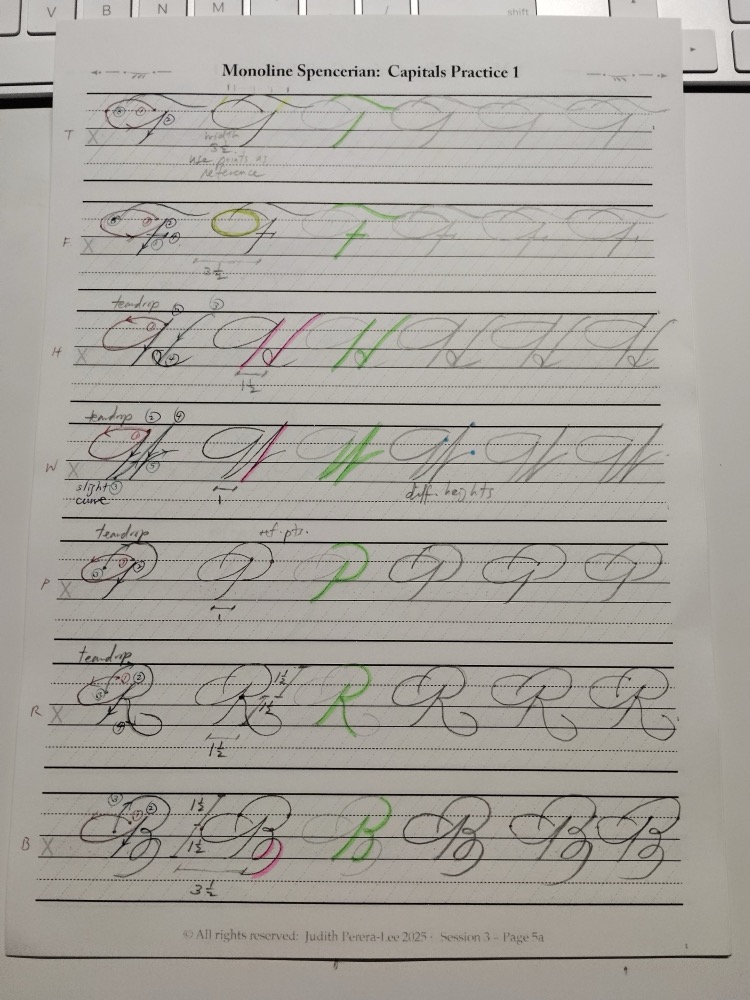 V B N M shift
Monoline Spencerian: Capitals Practice 1
T X
width
3½
use points as
reference
F X
3½
teardrop
H X
1½
teardrop
W X
slight
curve
1
diff. heights
teardrop ref. pts.
P X
1
teardrop
1½
R X 1½
1½
1½
B X 1½
3½
© All rights reserved: Judith Perera-Lee 2025 · Session 3 – Page 5a